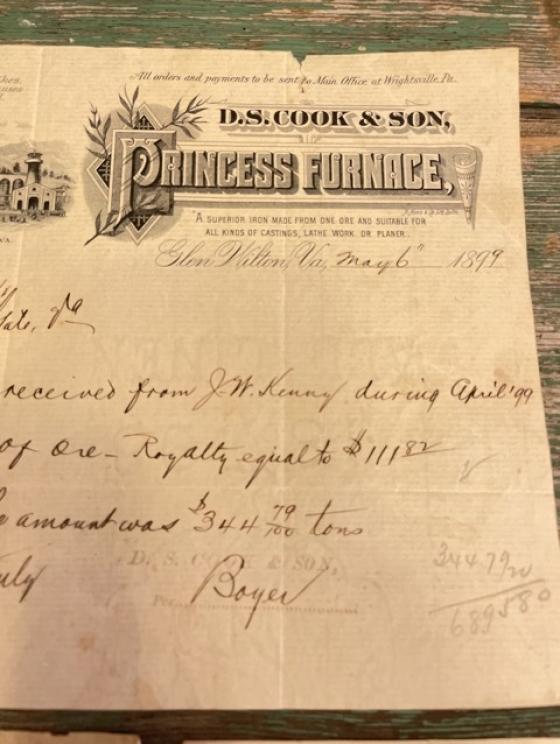 All orders and payments to be sent to Main Office at Wrightsville, Pa.
D. S. COOK & SON,
PRINCESS FURNACE,
"A SUPERIOR IRON MADE FROM ONE ORE AND SUITABLE FOR
ALL KINDS OF CASTINGS, LATHE WORK OR PLANER.
Glen Wilton, Va, May 6" 1899
Va
received from J. W. Kenny during April '99
of Ore - Royalty equal to $111 82
amount was $344 79/100 tons
D. S. COOK & SON,
Per Boyer
344 79
689 580